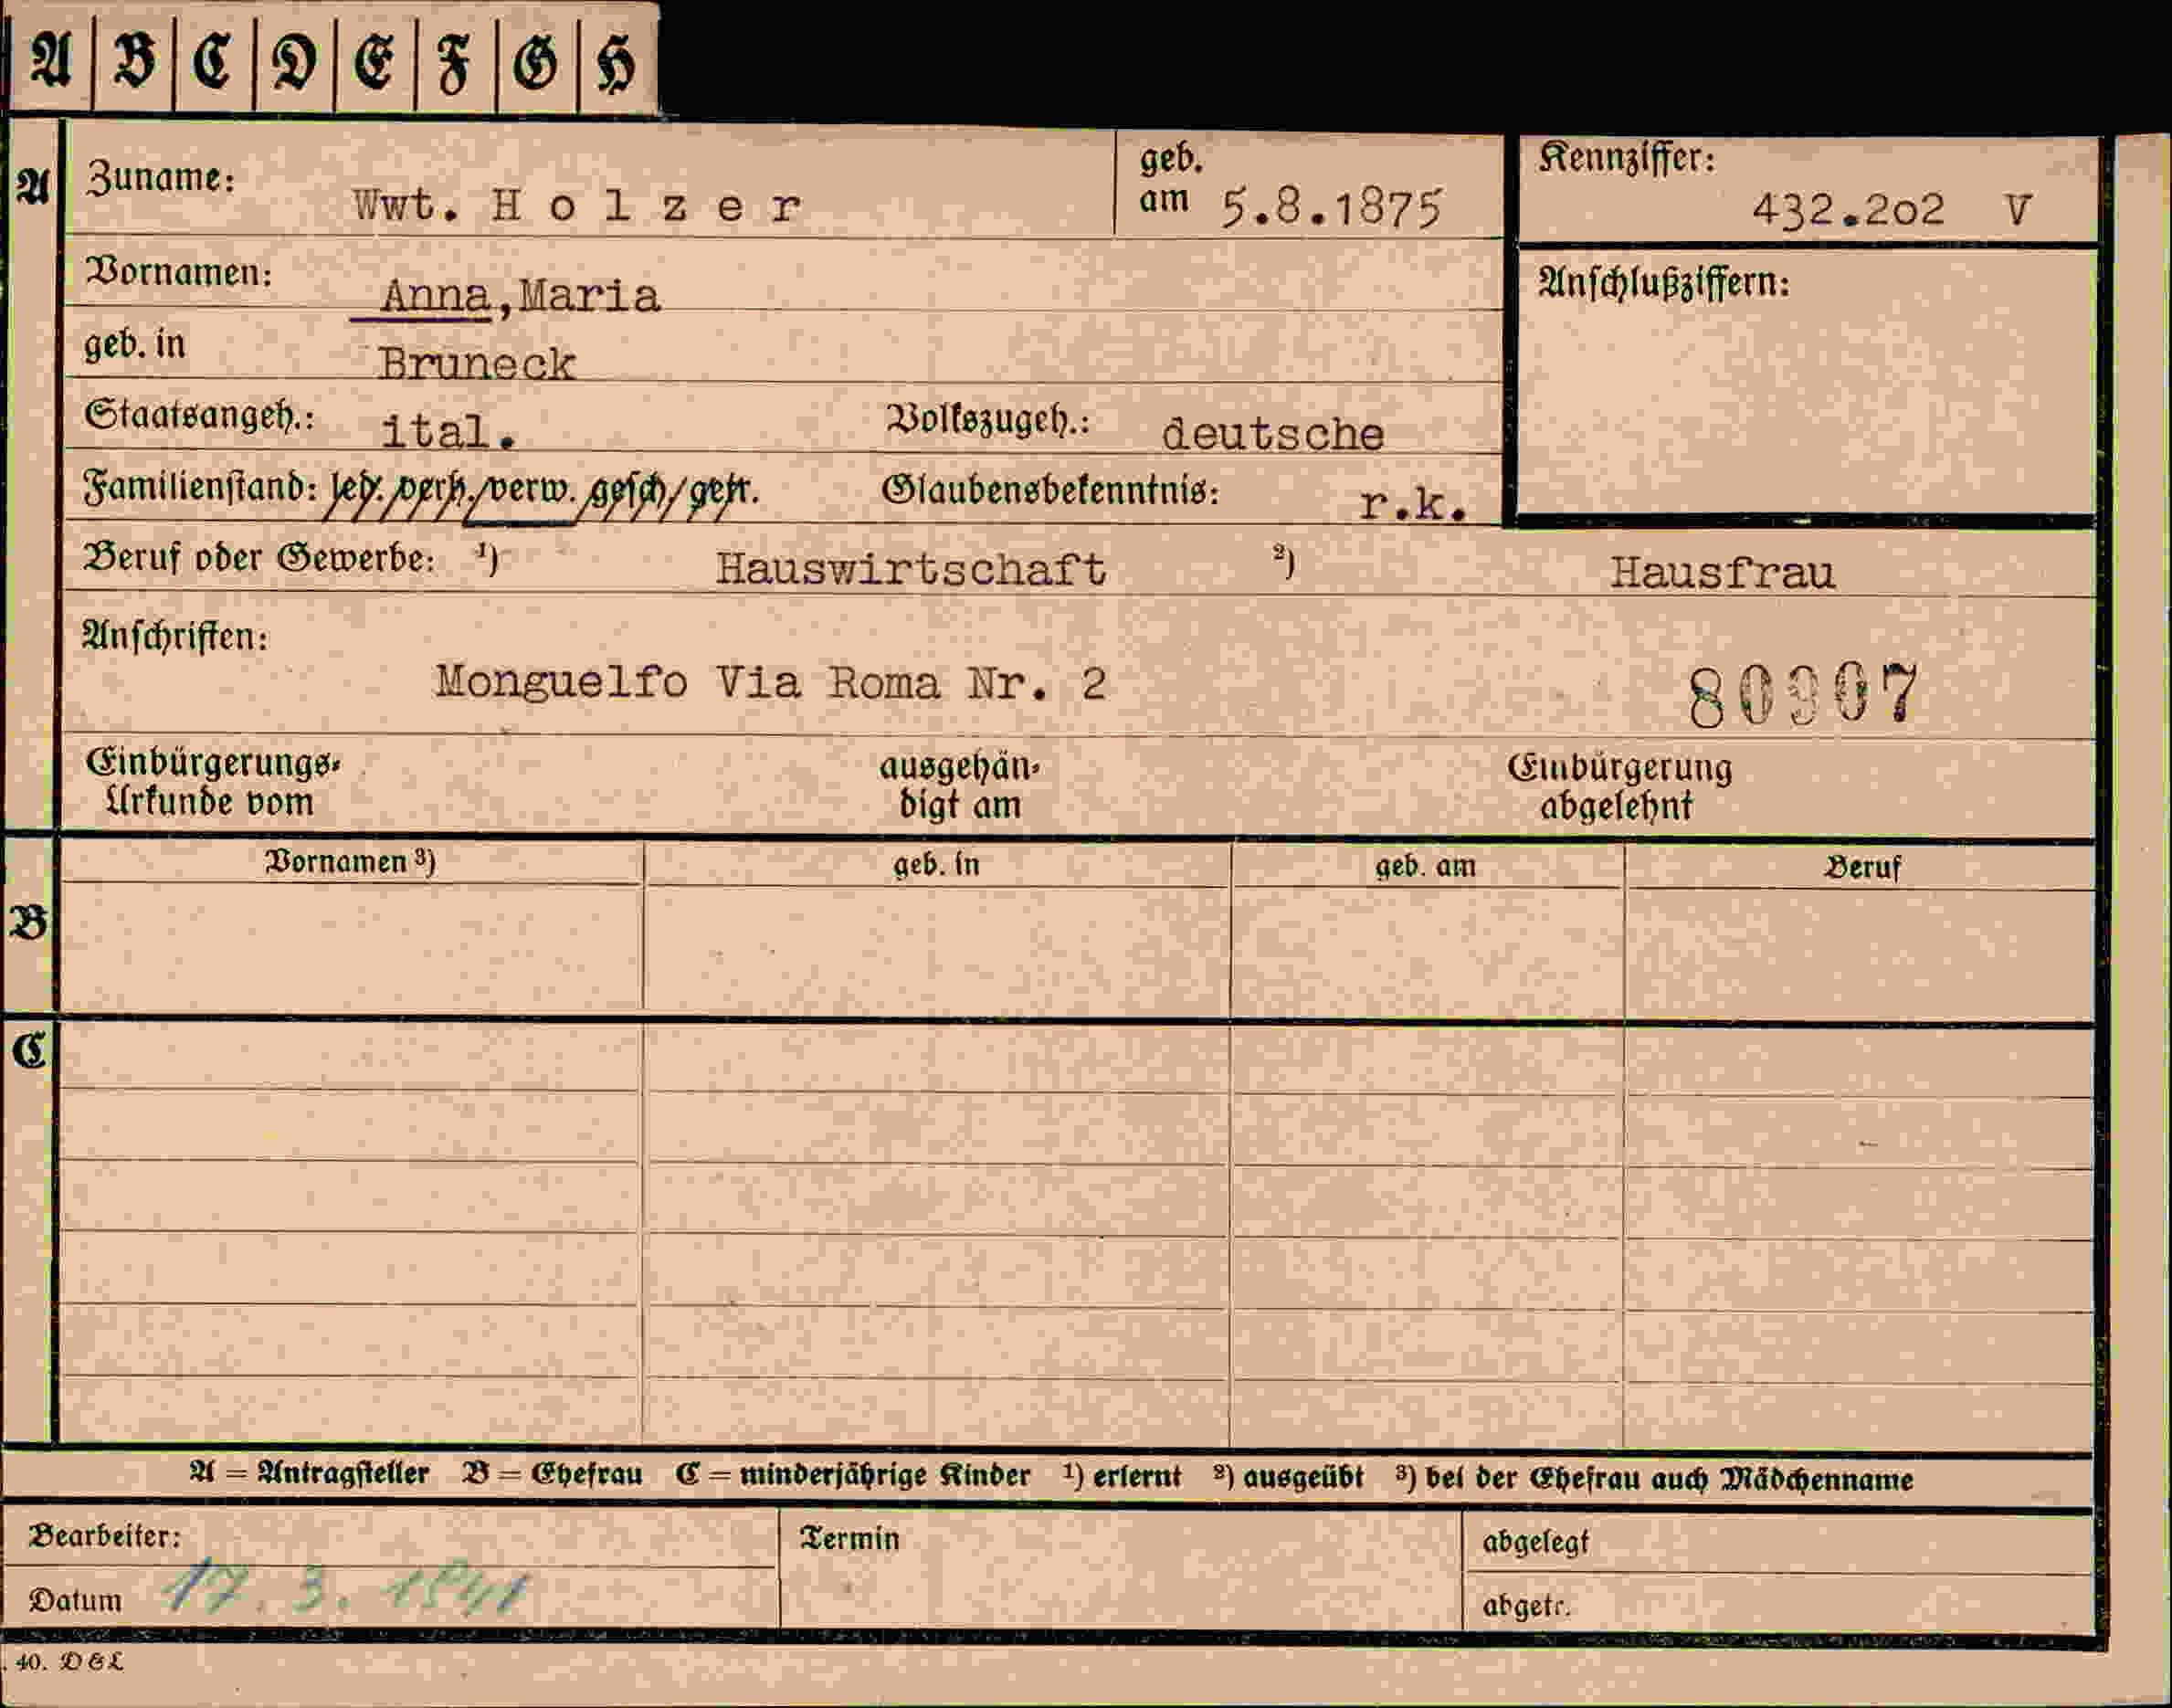 A B C D E F G H
A Zuname: Wwt. H o l z e r geb. am 5.8.1875 Kennziffer: 432.202 V
Vornamen: Anna,Maria Anschlußziffern:
geb. in Bruneck
Staatsangeh.: ital. Volkszugeh.: deutsche
Familienstand: led./verh./verw. gesch/getr. Glaubensbekenntnis: r.k.
Beruf oder Gewerbe: ¹) Hauswirtschaft ²) Hausfrau
Anschriften:
Monguelfo Via Roma Nr. 2 80907
Einbürgerungs- ausgehän- Einbürgerung
Urkunde vom digt am abgelehnt
Vornamen ³) geb. in geb. am Beruf
B
C
A = Antragsteller B = Ehefrau C = minderjährige Kinder ¹) erlernt ²) ausgeübt ³) bei der Ehefrau auch Mädchenname
Bearbeiter: Termin abgelegt
Datum 17. 3. 1941 abgetr.
40. D&L